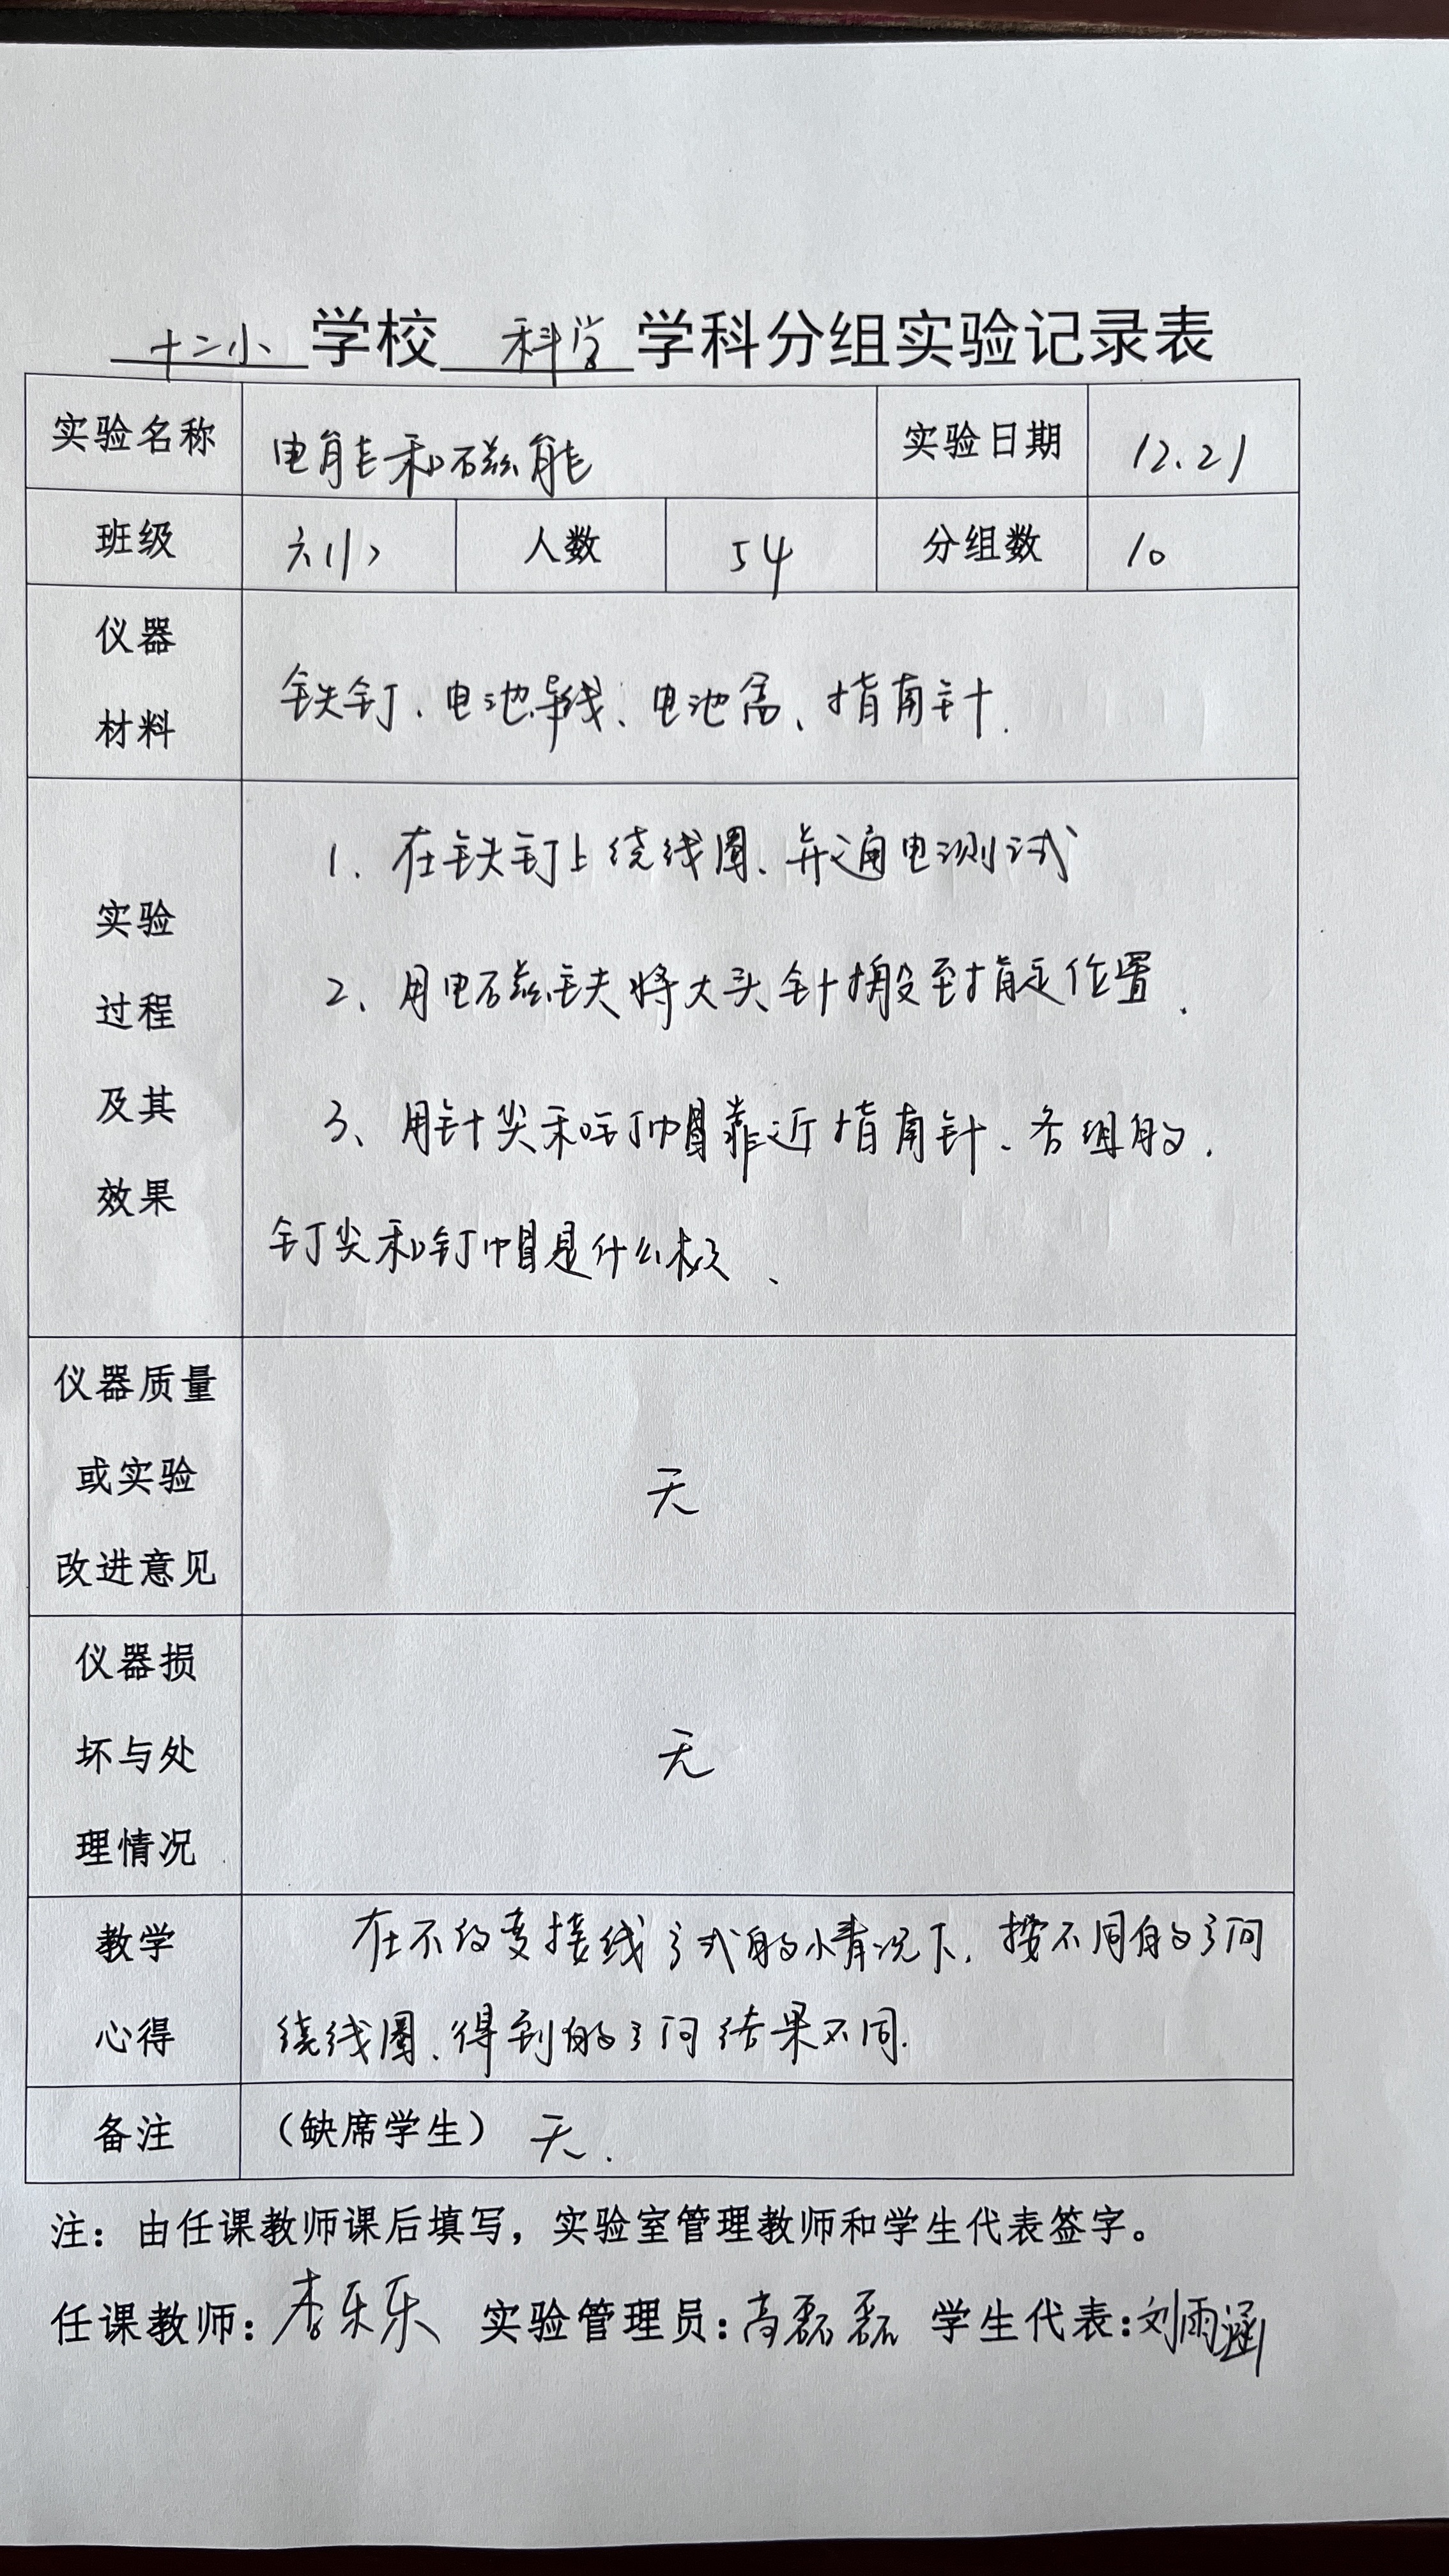 十二小 学校 科学 学科分组实验记录表
实验名称 电能和磁能 实验日期 12.21
班级 六(1) 人数 54 分组数 10
仪器
材料
铁钉、电池导线、电池盒、指南针.
实验
过程
及其
效果
1、在铁钉上绕线圈、并通电测试
2、用电磁铁将大头针搬至指定位置.
3、用针尖和钉帽靠近指南针、各组的.
钉尖和钉帽是什么极、
仪器质量
或实验
改进意见
无
仪器损
坏与处
理情况
无
教学
心得
在不改变接线方式的情况下,按不同的方向
绕线圈、得到的方向结果不同.
备注 (缺席学生) 无.
注:由任课教师课后填写,实验室管理教师和学生代表签字。
任课教师:李乐乐 实验管理员:高磊磊 学生代表:刘雨涵